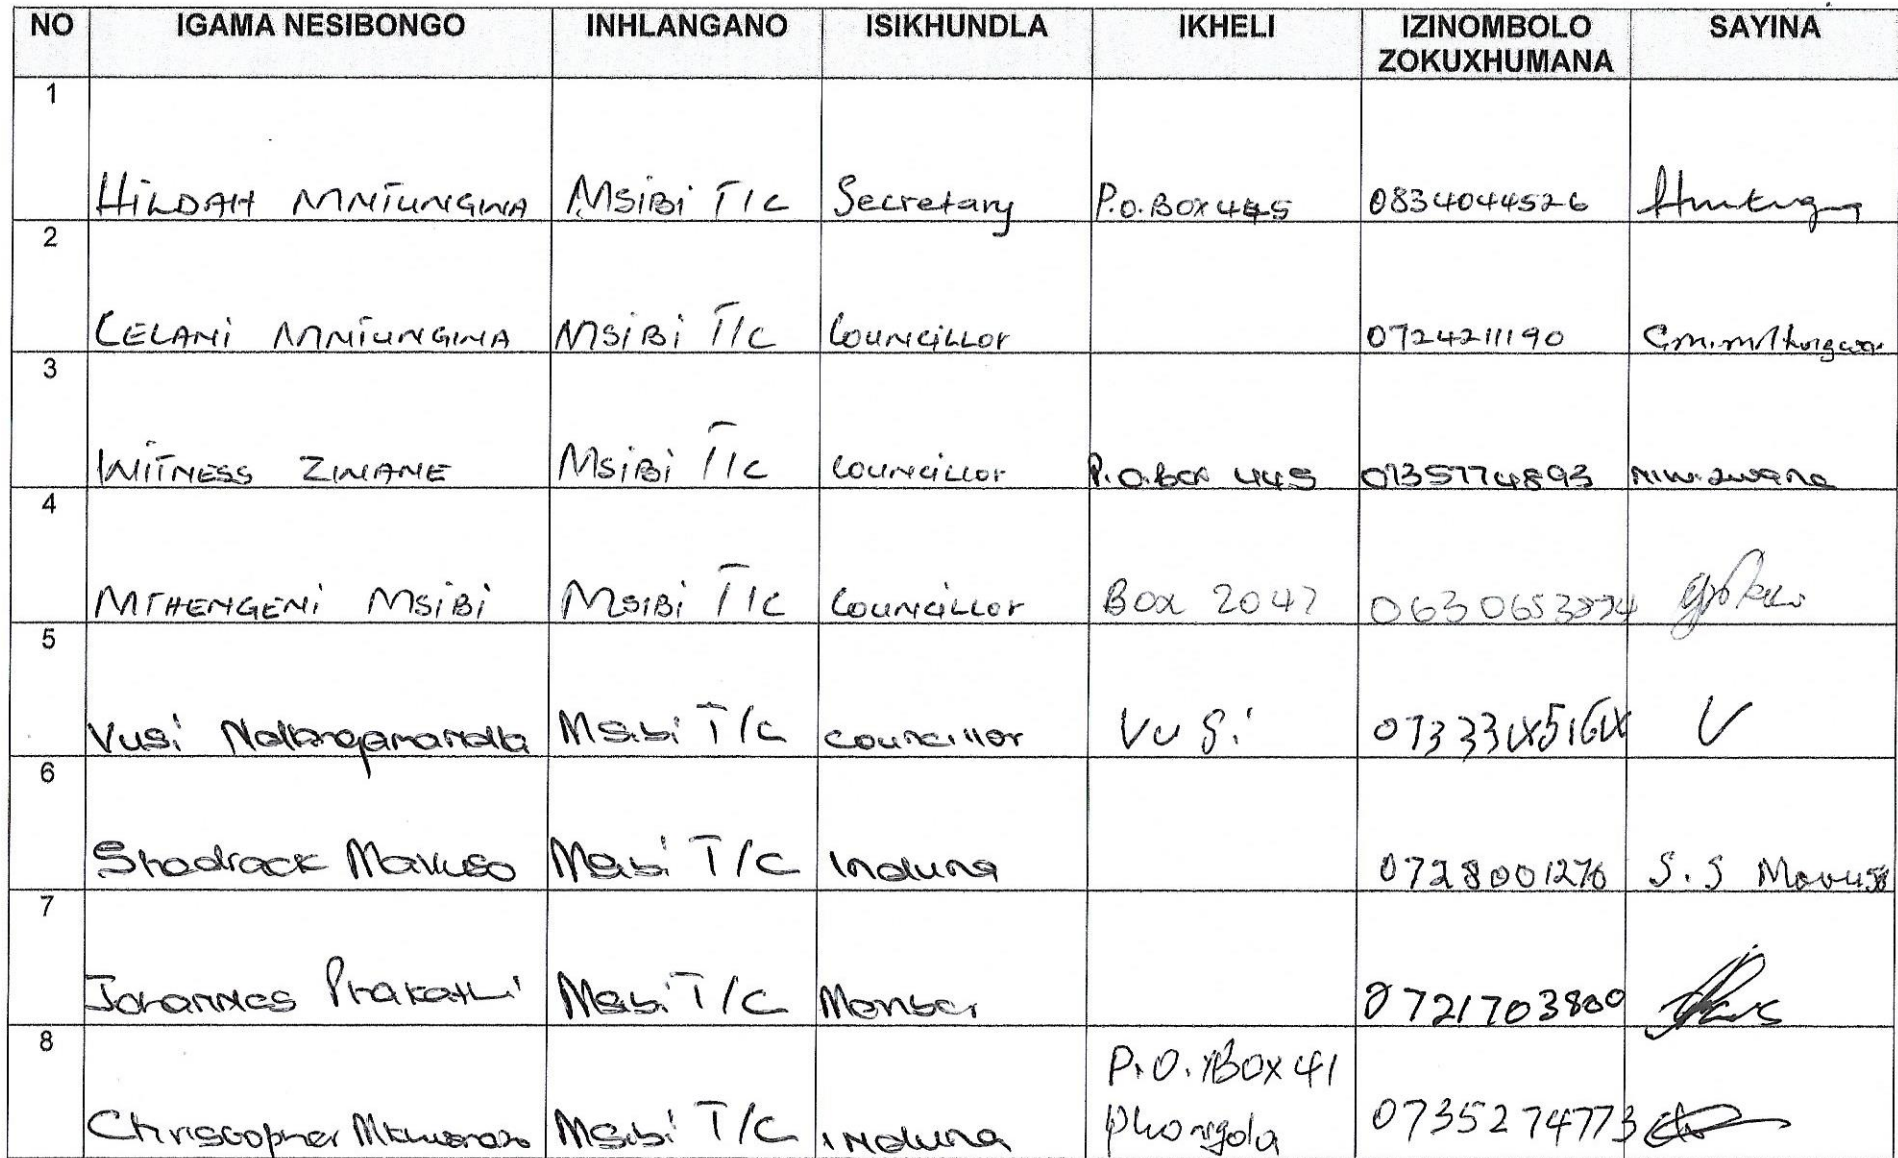 NO IGAMA NESIBONGO INHLANGANO ISIKHUNDLA IKHELI IZINOMBOLO ZOKUXHUMANA SAYINA
1
HiLDAH MNTUNGWA MSiBi T/C Secretary P.O.BOX 445 0834044526
2
CELANi MNTUNGWA MSiBi T/C COUNCiLLOR 0724211190
3
WiTNESS ZWANE MSiBi T/C COUNCiLLOR P.O.Box 445 0735774893
4
MTHENGENi MSiBi MSiBi T/C COUNCiLLOR Box 2047
5
Vusi Msibi T/C councillor VuSi V
6
Shadrack Mavuso Msibi T/C Induna 0728001276 S.S Mavuso
7
Johannes Phakathi Msibi T/C Member 0721703800
8
Christopher Msibi T/C Induna P.O.Box 41 0735274773
Phongola